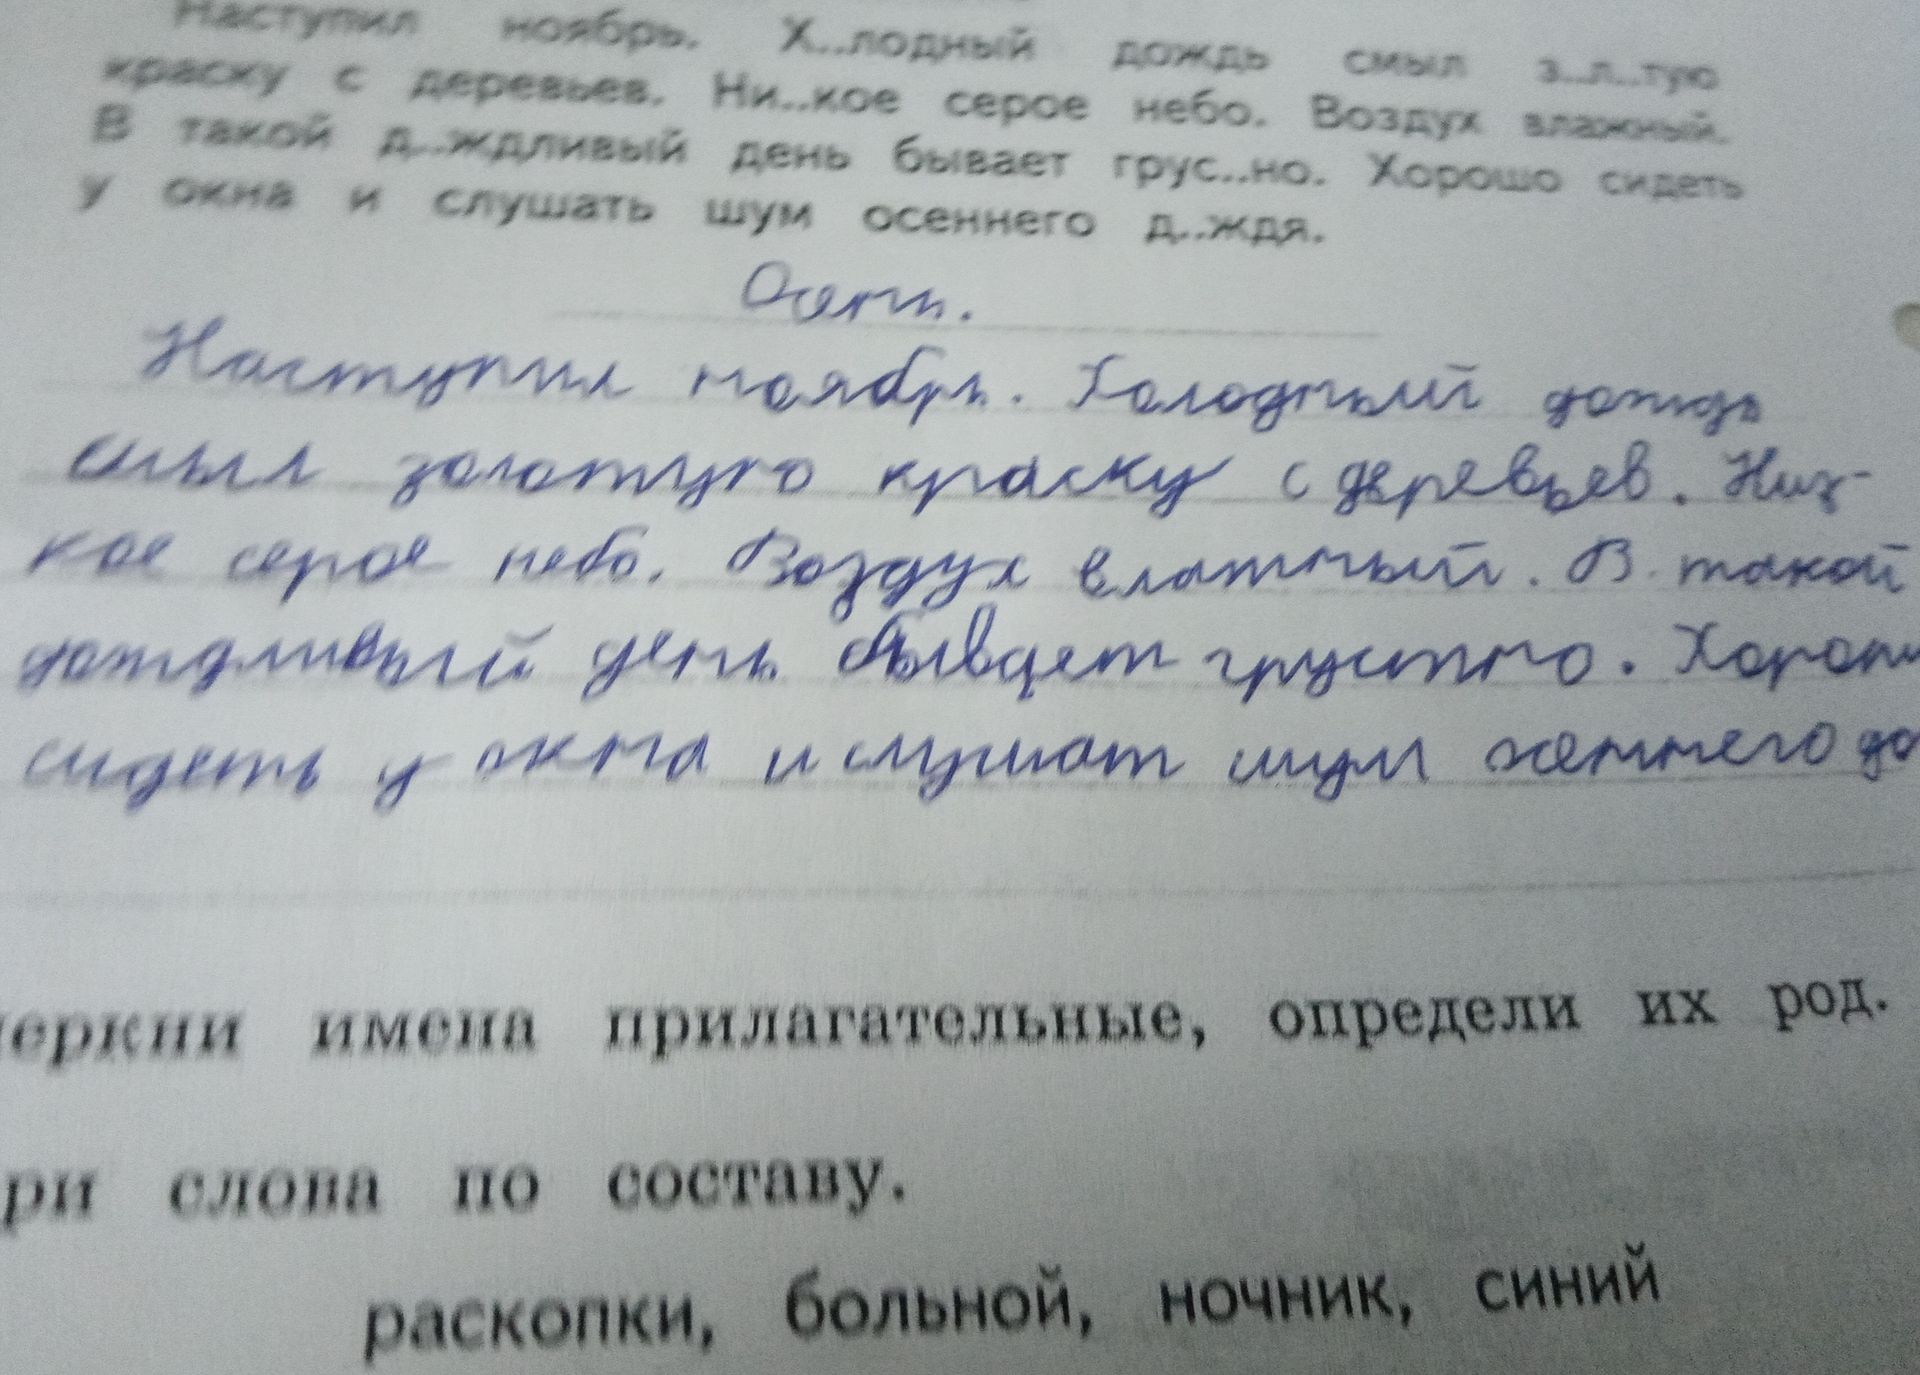 Наступил ноябрь. Х...лодный дождь смыл з...л...тую
краску с деревьев. Ни...кое серое небо. Воздух влажный.
В такой д...ждливый день бывает грус...но. Хорошо сидеть
у окна и слушать шум осеннего д...ждя.
Осень.
Наступил ноябрь. Холодный дождь
смыл золотую краску с деревьев. Низ-
кое серое небо. Воздух влажный. В такой
дождливый день бывает грустно. Хорош
сидеть у окна и слушат шум осеннего до
черкни имена прилагательные, определи их род.
ри слова по составу.
раскопки, больной, ночник, синий